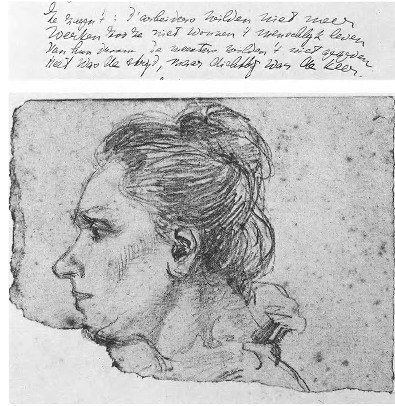 d'arbeiders wilden niet meer
Werken voor ze niet wonnen 't menschlijk leven
Van hun de meesters wilden 't niet gegeven
Heet was de strijd, maar dichtbij was de keer.